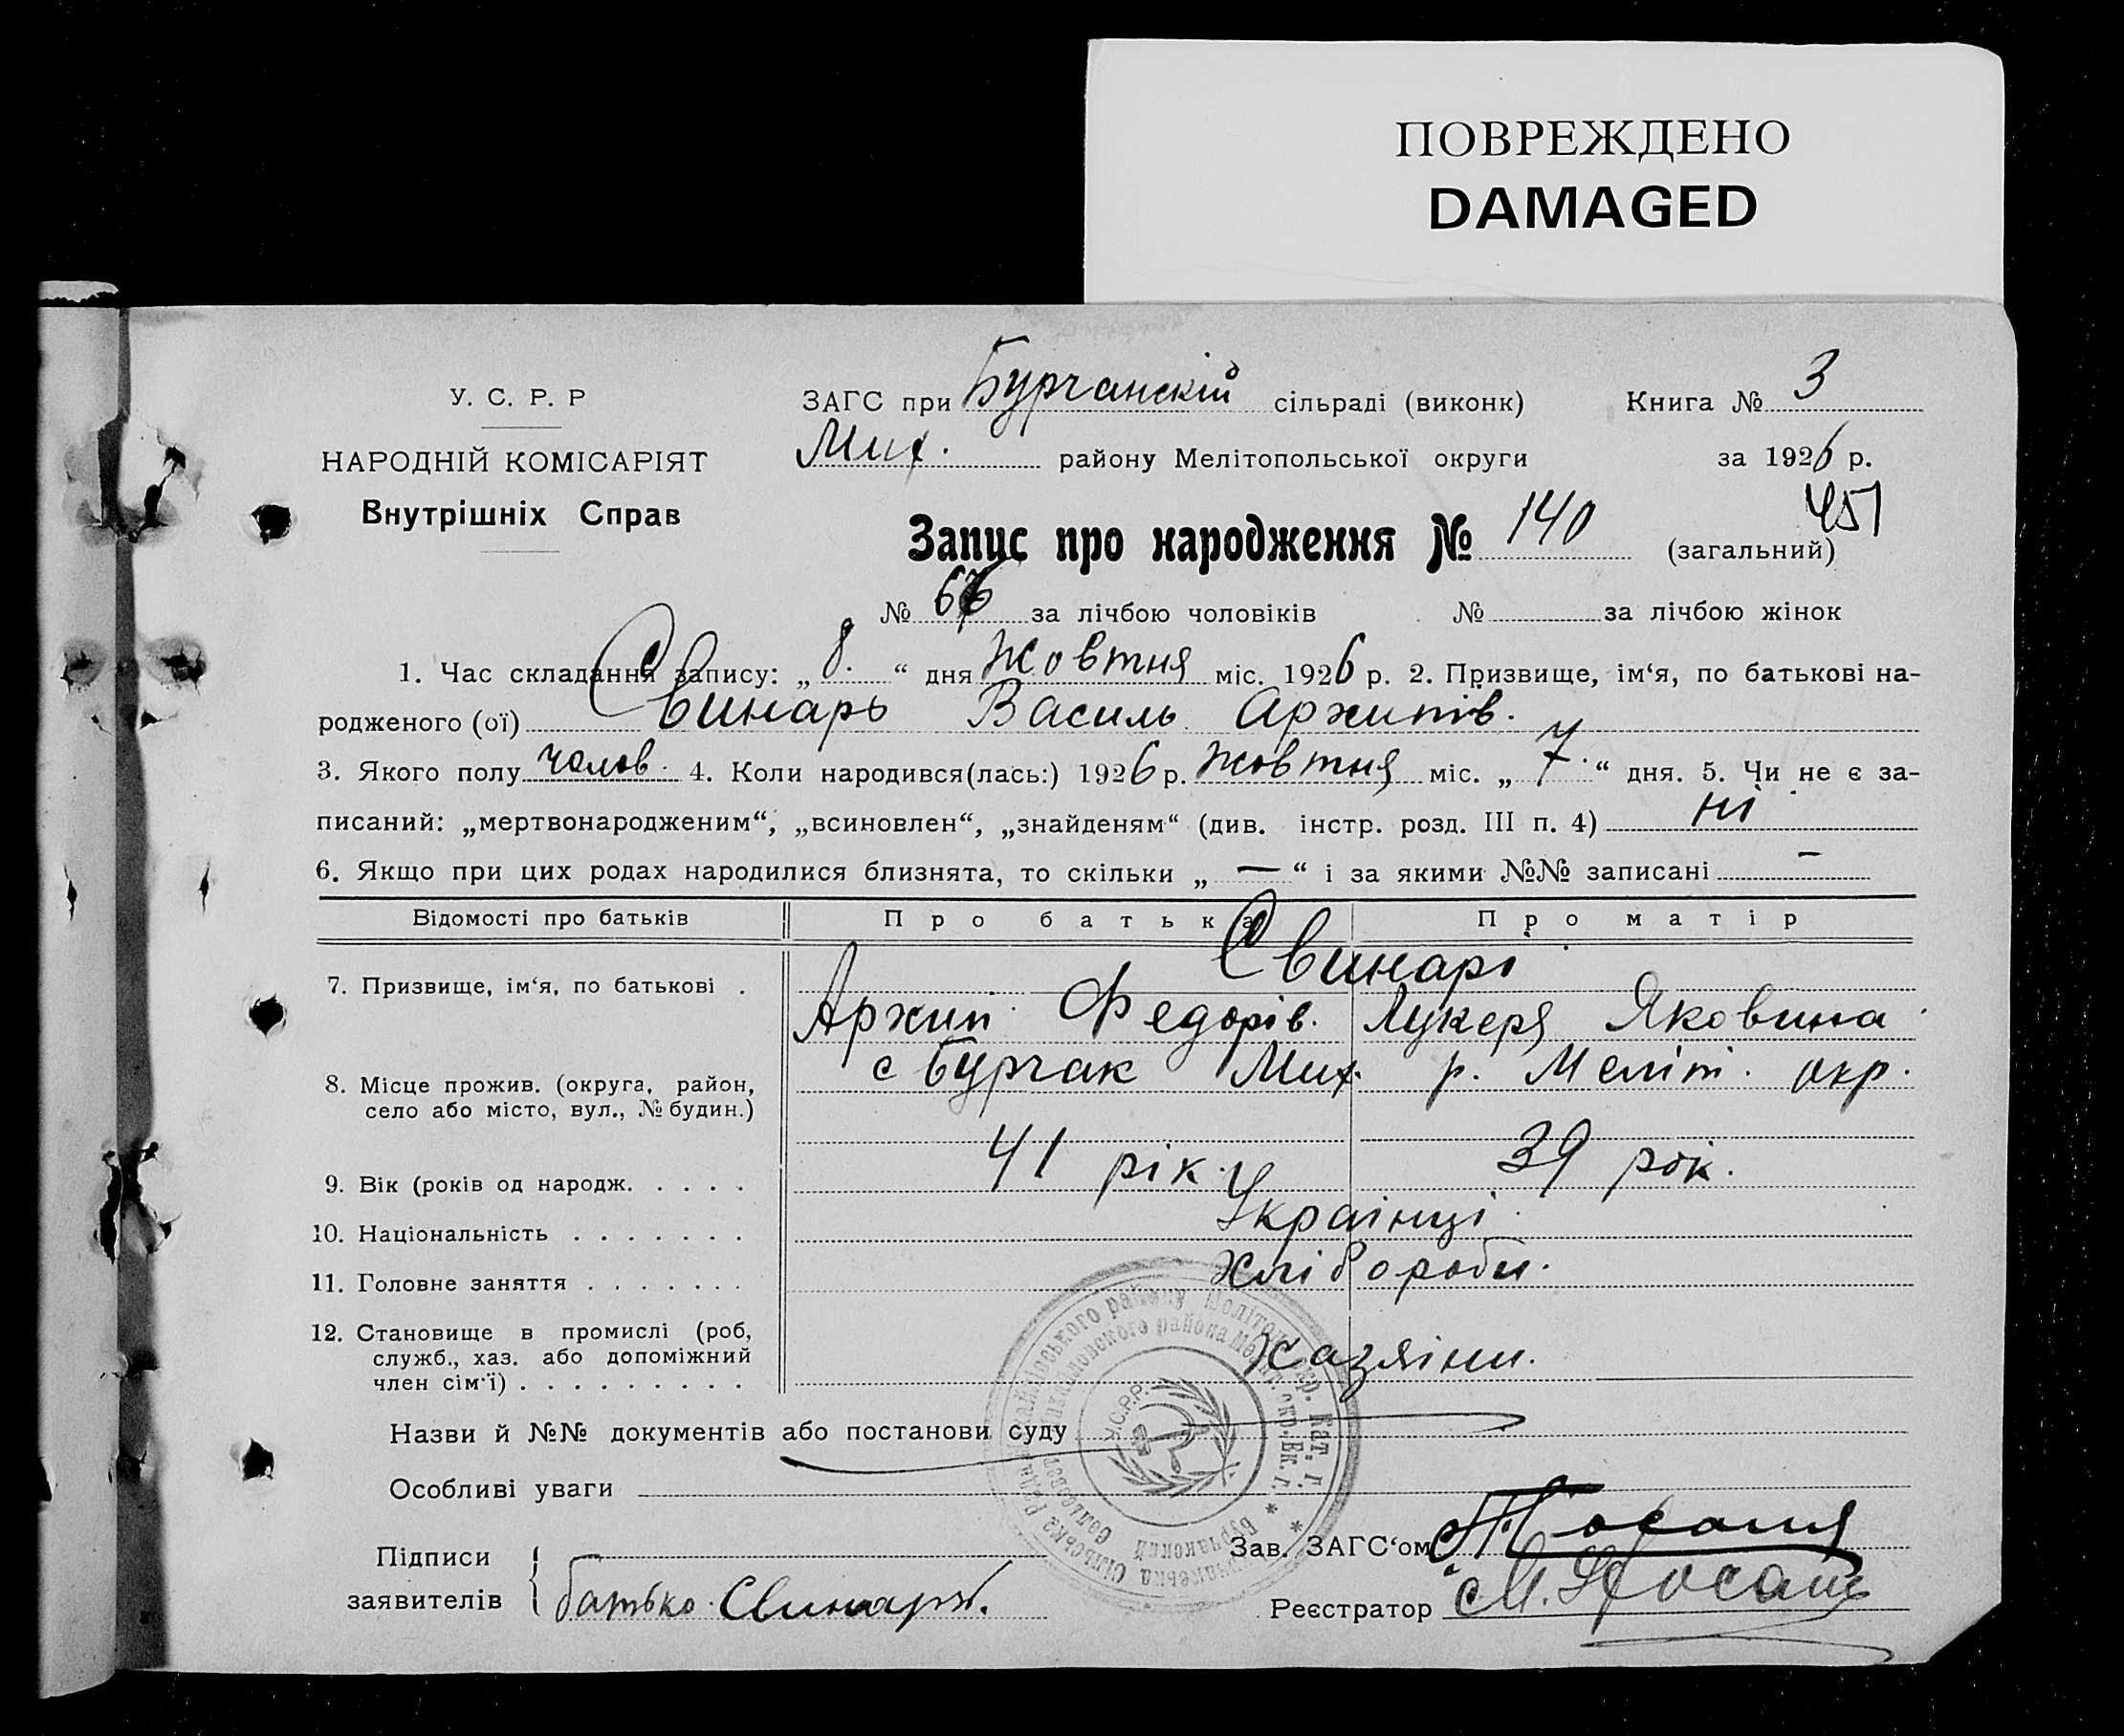 ПОВРЕЖДЕНО
DAMAGED
У. С. Р. Р
НАРОДНІЙ КОМІСАРІЯТ
Внутрішніх Справ
ЗАГС при Бурчанскій сільраді (виконк) Книга № 3
Мих. району Мелітопольської округи за 1926 р.
451
Запис про народження № 140 (загальний)
№ за лічбою чоловіків № за лічбою жінок
1. Час складання запису: „8.“ дня Жовтня міс. 1926 р. 2. Призвище, ім‘я, по батькові на-
родженого (ої) Свинарь Василь Архипів.
3. Якого полу чолов. 4. Коли народився(лась:) 1926 р. жовтня міс. „7.“ дня. 5. Чи не є за-
писаний: „мертвонародженим“, „всиновлен“, „знайденям“ (див. інстр. розд. III п. 4) ні
6. Якщо при цих родах народилися близнята, то скільки „—“ і за якими №№ записані —
Відомості про батьків Про батька Про матір
Свинарі
7. Призвище, ім‘я, по батькові . Архип Федорів. Лукеря Яковина
8. Місце прожив. (округа, район, с Бурчак Мих. р. Меліт. окр.
село або місто, вул., № будин.)
9. Вік (років од народж. . . . . 41 рік. 39 рок.
10. Національність . . . . . . . Українці
11. Головне заняття . . . . . . . Хлібороби.
12. Становище в промислі (роб,
служб., хаз. або допоміжний Хазяіни.
член сім‘ї) . . . . . . . . .
Назви й №№ документів або постанови суду
Особливі уваги
У.С.Р.Р.
Підписи Зав. ЗАГС‘ом
заявителів батько Свинарь. Реєстратор М. Носань